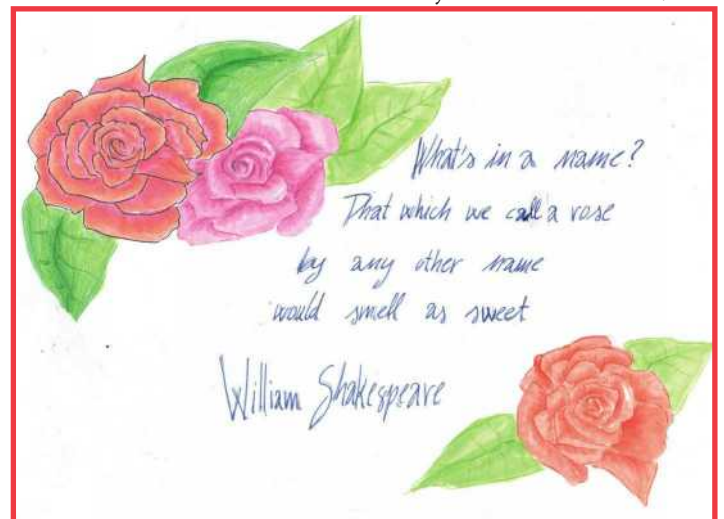 What's in a name?
That which we call a rose
by any other name
would smell as sweet
William Shakespeare